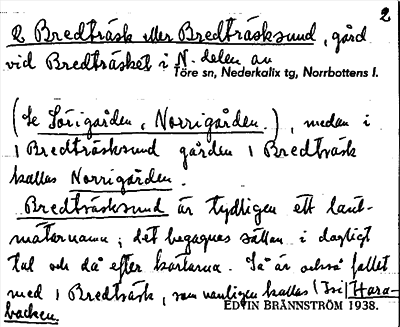 2
2 Bredträsk eller Bredträsksund, gård
vid Bredträsket i N. delen av
Töre sn, Nederkalix tg, Norrbottens l.
(se Sörigården, Norrigården.), medan i
1 Bredträsksund gården 1 Bredträsk
kallas Norrigården.
Bredträsksund är tydligen ett lant-
mäternamn; det begagnas sällan i dagligt
tal och då efter kartorna. Så är också fallet
med 1 Bredträsk, som vanligen kallas (Isi) Hara-
backen.
EDVIN BRÄNNSTRÖM 1938.